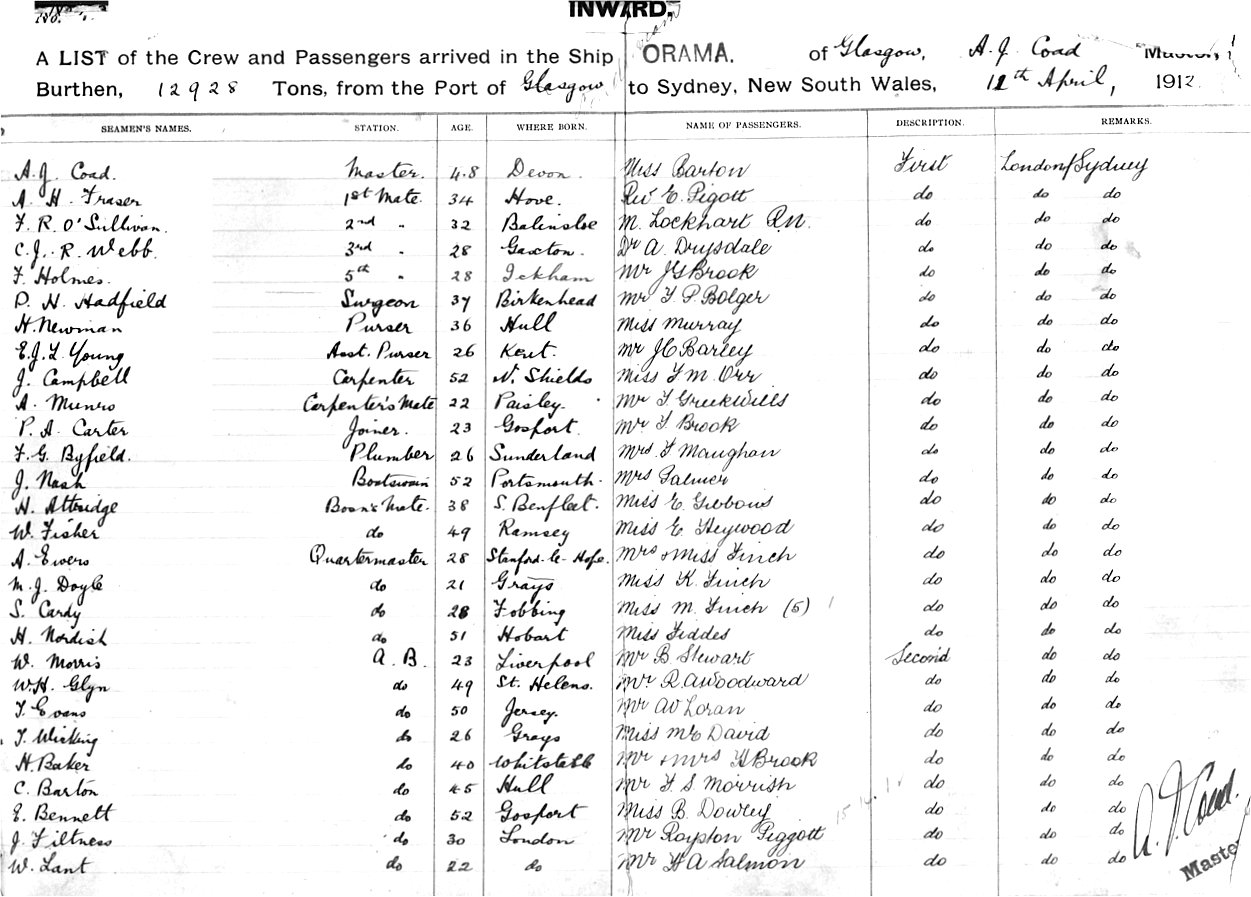 INWARD.
A LIST of the Crew and Passengers arrived in the Ship ORAMA. of Glasgow, A. J. Coad Master,
Burthen, 12928 Tons, from the Port of Glasgow to Sydney, New South Wales, 12th April, 1912
SEAMEN'S NAMES. STATION. AGE. WHERE BORN. NAME OF PASSENGERS. DESCRIPTION. REMARKS.
A. J. Coad. Master. 48 Devon. Miss Barton First London/Sydney
A. H. Fraser 1st Mate. 34 Hove. Rev E. Pigott do do do
F. R. O'Sullivan. 2nd " 32 Balinsloe M. Lockhart R.N. do do do
C. J. R. Webb. 3rd " 28 Gaxton. Dr A. Drysdale do do do
F. Holmes. 5th " 28 Ickham Mr JG Brook do do do
P. H. Hadfield Surgeon 37 Birkenhead Mr F. P. Bolger do do do
H. Newman Purser 36 Hull Miss Murray do do do
E. J. L. Young Asst. Purser 26 Kent. Mr JC Barley do do do
J. Campbell Carpenter 52 N. Shields Miss F. M. Orr do do do
A. Munro Carpenter's Mate 22 Paisley. Mr F. do do do
P. A. Carter Joiner. 23 Gosport. Mr F. Brook do do do
F. G. Byfield. Plumber 26 Sunderland Mrs F Maughan do do do
J. Nash Boatswain 52 Portsmouth. Mrs do do do
H. Attridge Bosn's Mate. 38 S. Benfleet. Miss E. Gibbons do do do
W. Fisher do 49 Ramsey Miss E. Heywood do do do
A. Ewers Quartermaster 28 Stanford-le-Hope. Mrs & Miss Finch do do do
M. J. Doyle do 21 Grays Miss K. Finch do do do
S. Cardy do 28 Fobbing Miss M. Finch (5) do do do
H. Nordish do 51 Hobart Miss Fiddes do do do
W. Morris A. B. 23 Liverpool Mr B Stewart Second do do
W. H. Glyn do 49 St. Helens. Mr. R. A Woodward do do do
T. Evans do 50 Jersey. Mr Loran do do do
T. Wicking do 26 Grays Miss Mc David do do do
H. Baker do 40 Whitstable Mr & Mrs H Brook do do do
C. Barton do 45 Hull Mr F. S. Morrish do do do
E. Bennett do 52 Gosport Miss B. Dowley do do do
J. Filtness do 30 London Mr Royston Piggott do do do
W. Lant do 22 do Mr H A Salmon do do do
A. J. Coad.
Master